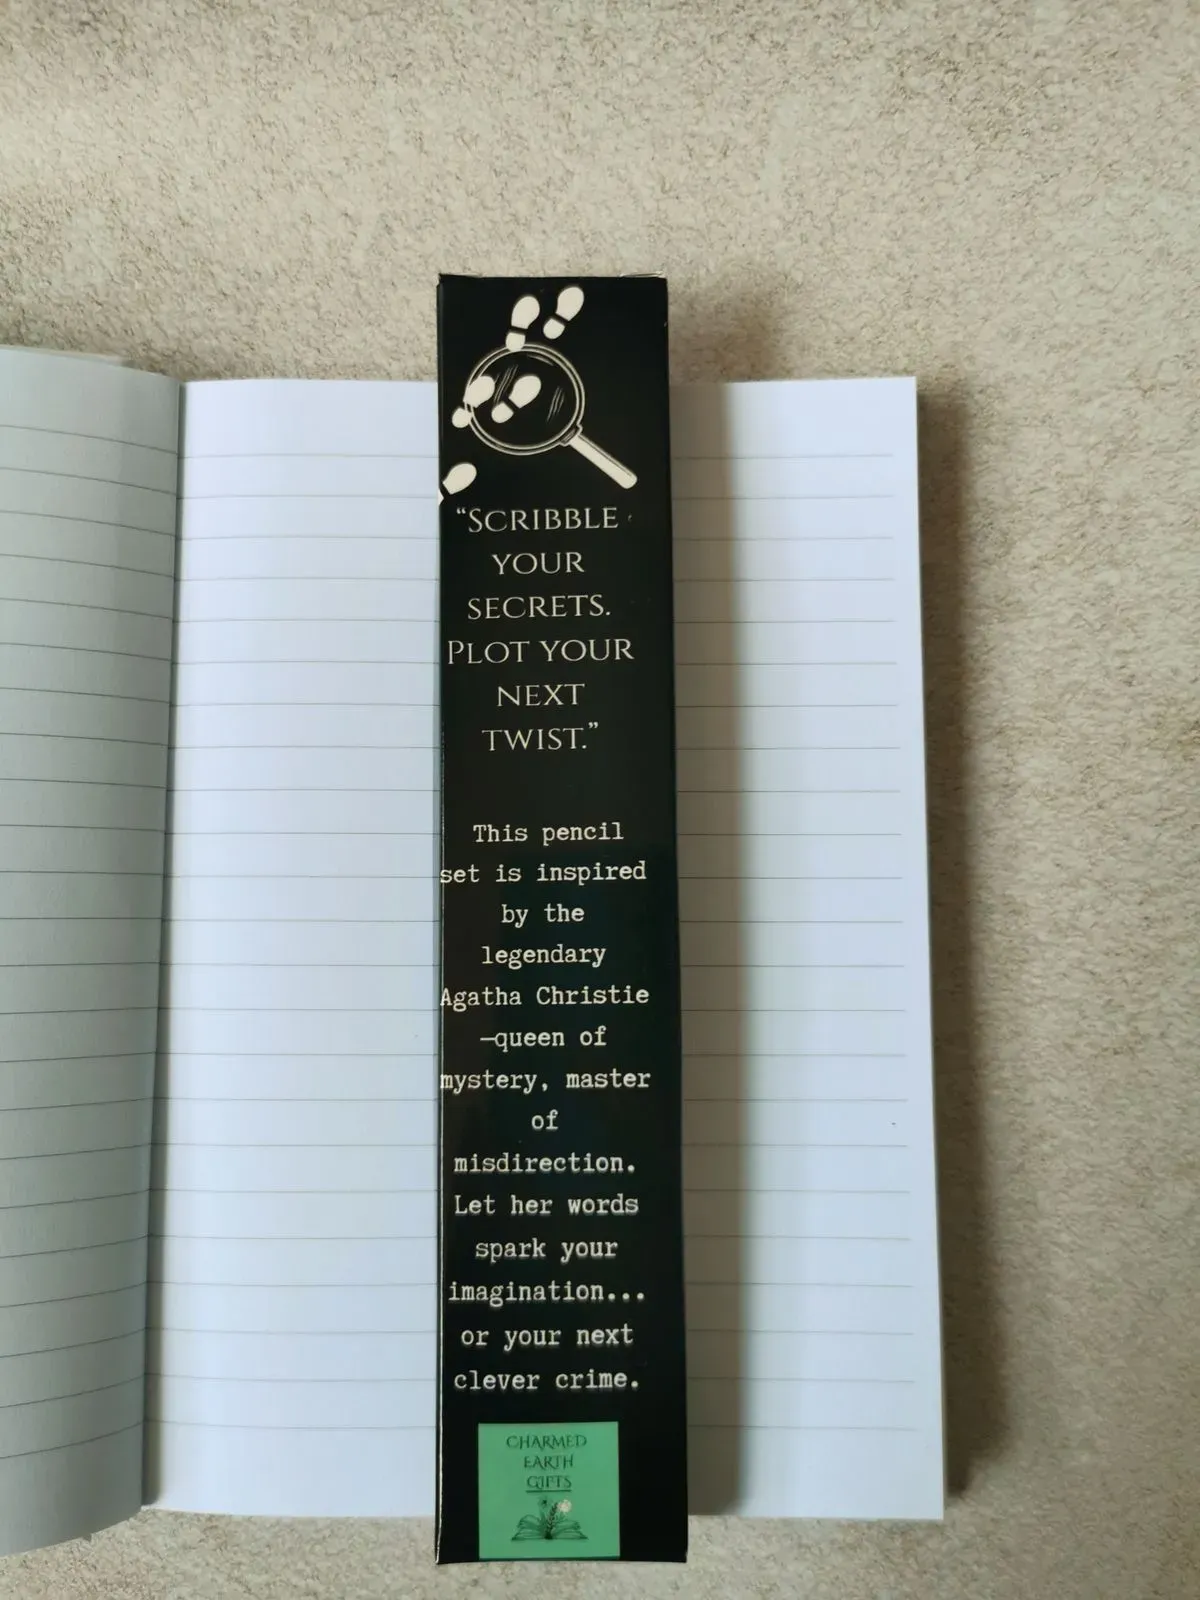 “SCRIBBLE
YOUR
SECRETS.
PLOT YOUR
NEXT
TWIST.”
This pencil
set is inspired
by the
legendary
Agatha Christie
—queen of
mystery, master
of
misdirection.
Let her words
spark your
imagination...
or your next
clever crime.
CHARMED
EARTH
GIFTS